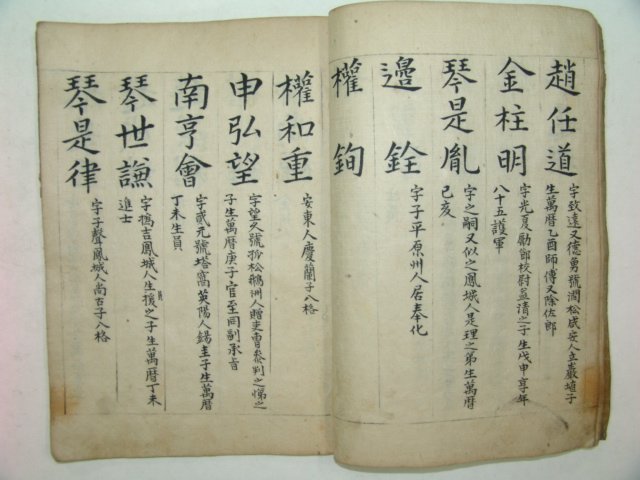 趙任道
字致遠又德勇號澗松咸安人立巖埴子
生萬曆乙酉師傅又除佐郎
金柱明
字光夏勵節校尉益清之子生戊申享年
八十五護軍
琴是胤
字之嗣又似之鳳城人是理之弟生萬曆
己亥
邊銓
字子平原州人居奉化
權鉤
權和重
安東人慶蘭子入格
申弘望
字望久號孤松鵝洲人贈吏曹參判之悌之
子生萬曆庚子官至同副承旨
南亨會
字 元號塔窩英陽人鍚圭子生萬曆
丁未生員
琴世謙
字撝吉鳳城人生員援之子生萬曆丁未
進士
琴是律
字子聲鳳城人尚古子入格